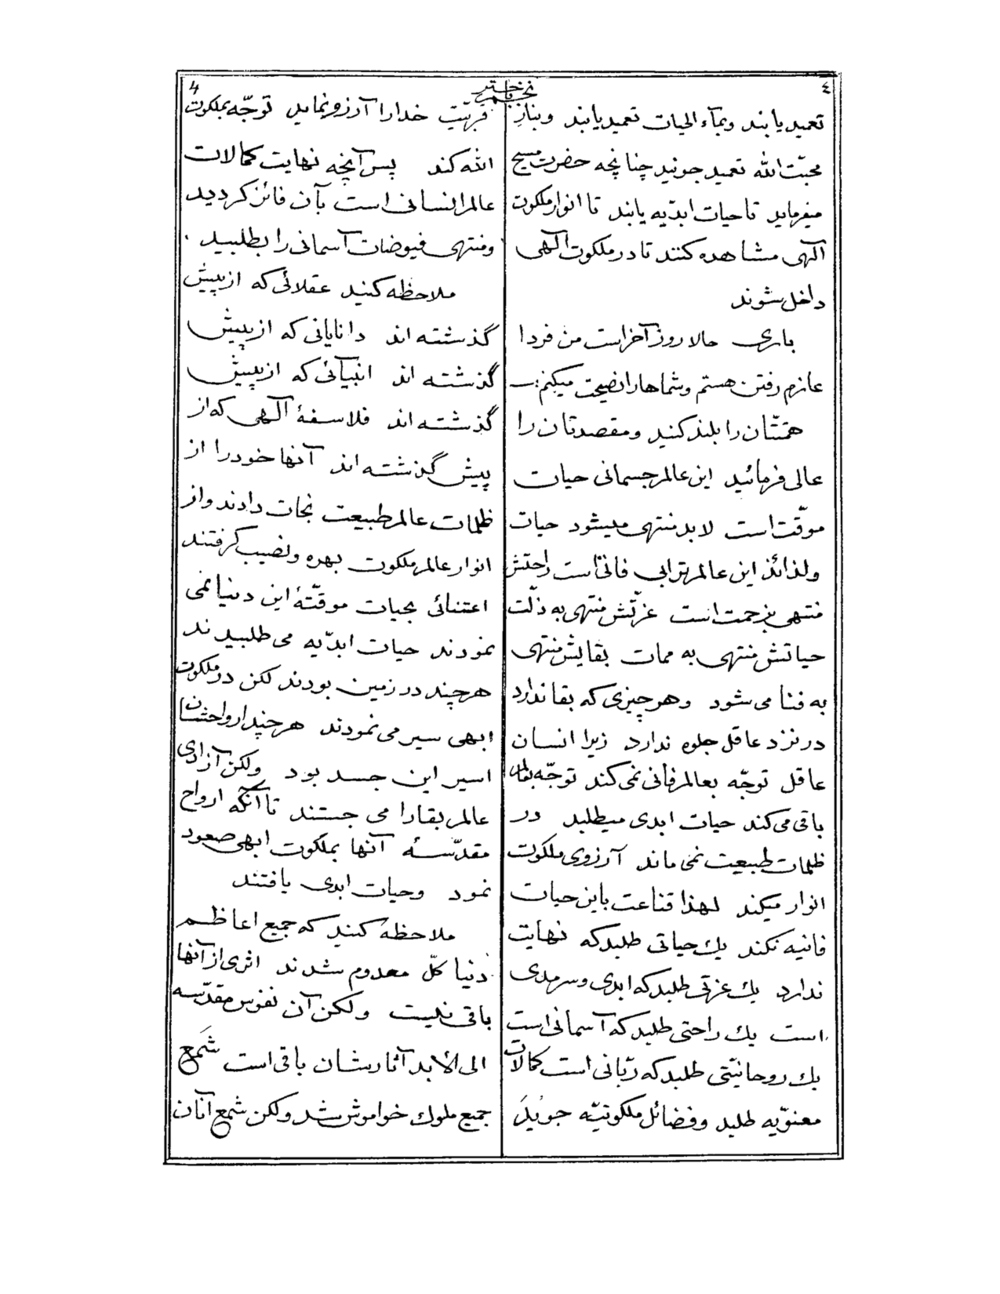 ٤
نجم باختر
4
تعمید یابند و بمآء الحیات تعمید یابند و بنار
محبّت الله تعمید جویند چنانچه حضرت مسیح
میفرماید تا حیات ابدّیه یابند تا انوار ملکوت
آلهی مشاهده کنند تا در ملکوت الهی
داخل شوند
باری حالا روز آخر است من فردا
عازم رفتن هستم و شماها را نصیحت میکنم :ـ
همّتتان را بلند کنید و مقصدتان را
عالی فرمائید این عالم جسمانی حیات
موقّت است لابد منتهی میشود حیات
و لذائذ این عالم ترابی فانی است راحتش
منتهی بزحمت است عزّتش منتهی به ذلّت
حیاتش منتهی به ممات بقایش منتهی
به فنا می شود و هر چیزی که بقا ندارد
در نزد عاقل جلوه ندارد زیرا انسان
عاقل توجّه بعالم فانی نمی کند توجّه بعالم
باقی می کند حیات ابدی میطلبد در
ظلمات طبیعت نمی ماند آرزوی ملکوت
انوار میکند لهذا قناعت باین حیات
فانیه نکند یك حیاتی طلبد که نهایت
ندارد یك عزّتی طلبد که ابدی و سرمدی
است یك راحتی طلبد که آسمانی است
یك روحانیّتی طلبد که ربّانی است کمالات
معنوّیه طلبد و فضائل ملکوتیّه جوید
قربیّت خدا را آرزو نماید توجّه بملکوت
الله کند پس آنچه نهایت کمالات
عالم انسانی است بآن فائز گردید
و منتهی فیوضات آسمانی را بطلبید .
ملاحظه کنید عقلائی که از پیش
گذشته اند دانایانی که از پیش
گذشته اند انبیآئی که از پیش
گذشته اند فلاسفهٔ آلهی که از
پیش گذشته اند آنها خود را از
ظلمات عالم طبیعت نجات دادند و از
انوار عالم ملکوت بهره و نصیب گرفتند
اعتنائی بحیات موقّتهٔ این دنیا نمی
نمودند حیات ابدّیه می طلبیدند
هر چند در زمین بودند لکن در ملکوت
ابهی سیر می نمودند هر چند ارواحشان
اسیر این جسد بود ولکن آزادی
عالم بقا را می جستند تا آنکه ارواح
مقدّسهٔ آنها بملکوت ابهی صعود
نمود و حیات ابدی یافتند
ملاحظه کنید که جمیع اعاظم
دنیا کلّ معدوم شدند اثری از آنها
باقی نیست ولکن آن نفوس مقدّسه
الی الأبد آثارشان باقی است شَمع
جمیع ملوك خواموش شد ولکن شمع آنان